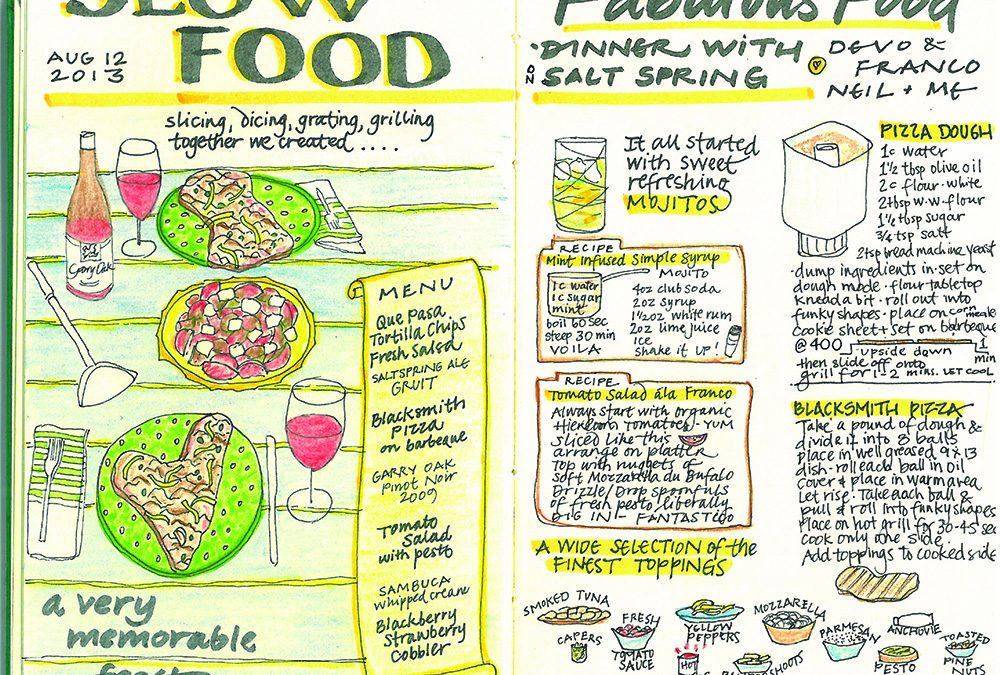 SLOW
FOOD
AUG 12
2013
slicing, dicing, grating, grilling
together we created ....
Garry Oak
MENU
Que Pasa
Tortilla Chips
Fresh Salsa
SALTSPRING ALE
GRUIT
Blacksmith
Pizza
on barbeque
GARRY OAK
Pinot Noir
2009
Tomato
Salad
with pesto
SAMBUCA
whipped cream
Blackberry
Strawberry
Cobbler
a very
memorable
feast
Fabulous Food
DINNER WITH
ON SALT SPRING
DEVO &
FRANCO
NEIL + ME
It all started
with sweet
refreshing
MOJITOS
RECIPE
Mint Infused Simple Syrup
1c water
1c sugar
mint
boil 60 sec
steep 30 min
VOILA
MOJITO
4oz club soda
2oz syrup
1 1/2oz white rum
2oz lime juice
ICE
shake it UP!
RECIPE
Tomato Salad ála Franco
Always start with organic
Heirloom Tomatoes - YUM
sliced like this
arrange on platter
Top with nuggets of
Soft Mozzarella du Bufalo
Drizzle/Drop spoonfuls
of fresh pesto liberally
DIG IN! - FANTASTICO
PIZZA DOUGH
1c water
1 1/2 tbsp olive oil
2c flour - white
2 tbsp w.w flour
1 1/4 tbsp sugar
3/4 tsp salt
2 tsp bread machine yeast
· dump ingredients in · set on
dough mode · flour tabletop
knead a bit · roll out into
funky shapes · place on cornmeale
cookie sheet + set on barbeque
@ 400
upside down
1 min
then slide off onto
grill for 1-2 mins. LET COOL
BLACKSMITH PIZZA
Take a pound of dough &
divide it into 8 balls
place in well greased 9x13
dish - roll each ball in oil
cover & place in warm area
Let rise · Take each ball &
pull & roll into funky shapes
Place on hot grill for 30-45 sec
cook only one side.
Add toppings to cooked side
A WIDE SELECTION of the
FINEST TOPPINGS
SMOKED TUNA
CAPERS
FRESH
TOMATO
SAUCE
YELLOW
PEPPERS
HOT
MOZZARELLA
PARMESAN
ANCHOVIE
PESTO
TOASTED
PINE
NUTS